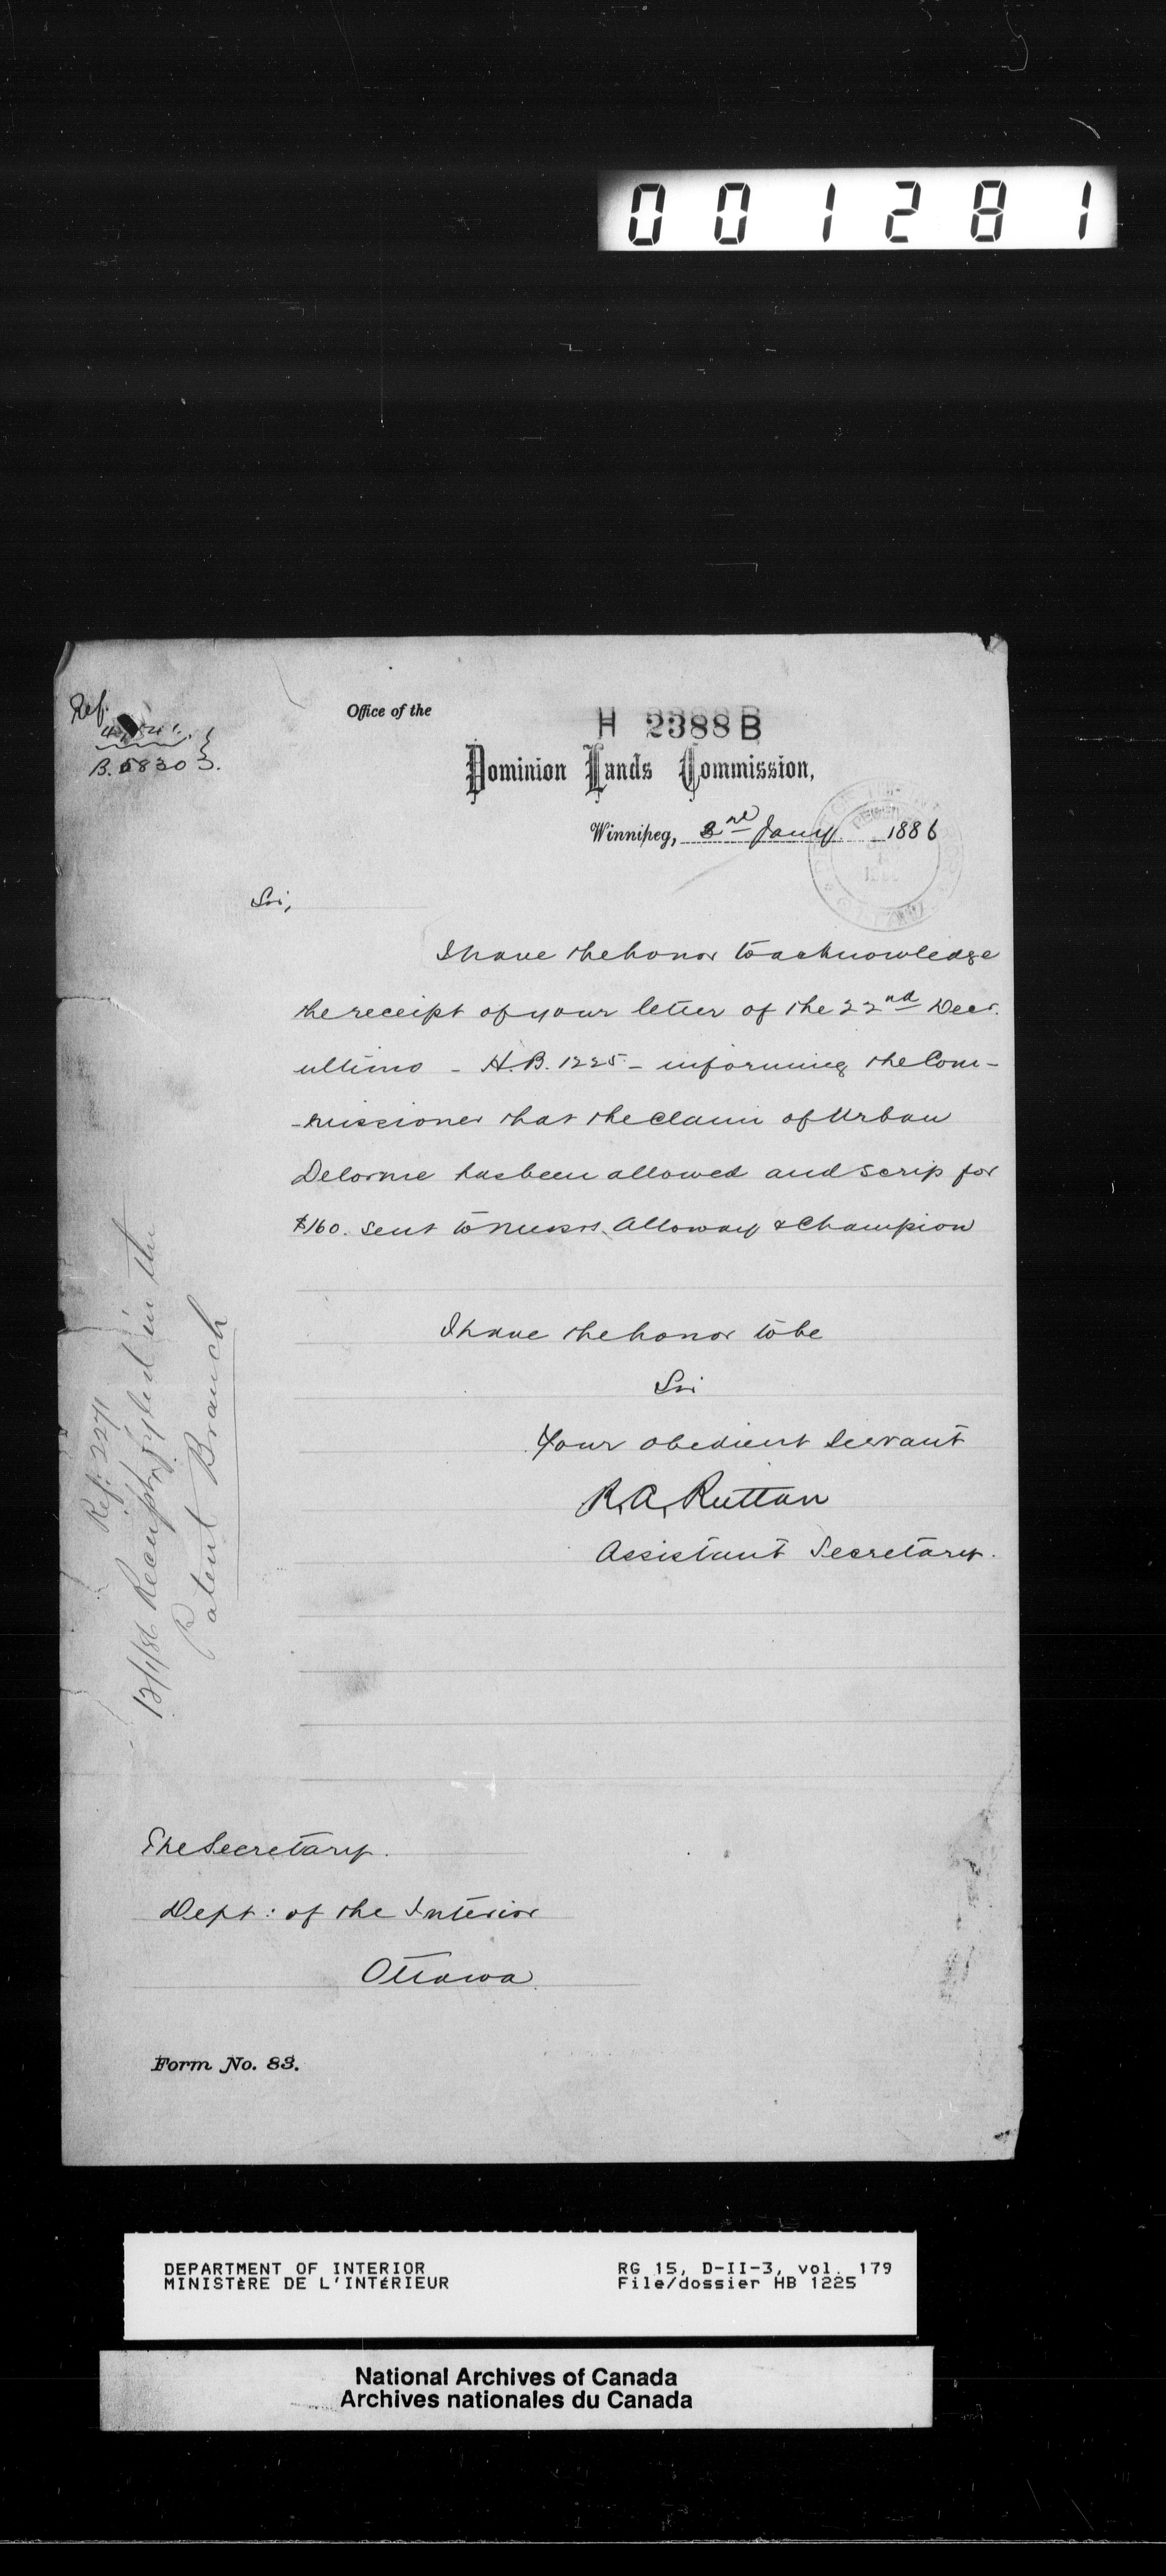 001281
Ref.
B. 58303.
Office of the
H 2388 B
Dominion Lands Commission,
Winnipeg, 2nd Jany 1886
Sir,
I have the honor to acknowledge
the receipt of your letter of the 22nd Decr.
ultimo - H.B. 1225 - informing the Com-
-missioner that the claim of Urban
Delorme has been allowed and scrip for
$160. sent to Messrs. Alloway & Champion
I have the honor to be
Sir
Your obedient servant
R. A. Ruttan
Assistant Secretary.
Ref. 2271
13/1/86 Receipt fyled in the
Patent Branch
The Secretary.
Dept: of the Interior
Ottawa.
Form No. 83.
DEPARTMENT OF INTERIOR
MINISTÈRE DE L'INTÉRIEUR
RG 15, D-II-3, vol. 179
File/dossier HB 1225
National Archives of Canada
Archives nationales du Canada